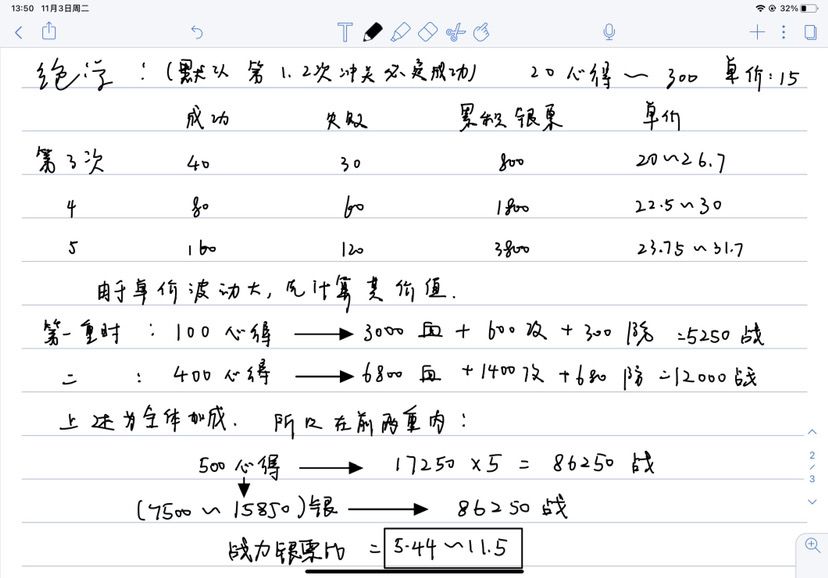 13:50 11月3日周二 32%
绝学：(默认第1.2次冲关必定成功) 20心得～300 单价:15
成功 失败 累积银票 单价
第3次 40 30 800 20～26.7
4 80 60 1800 22.5～30
5 160 120 3800 23.75～31.7
由于单价波动大,先计算其价值.
第一重时：100心得 → 3000血+600攻+300防=5250战
二：400心得 → 6800血+1400攻+680防=12000战
上述为全体加成. 所以在前两重内：
500心得 → 17250×5=86250战
(7500～15850)银 → 86250战
战力银票比=5.44～11.5
2/3